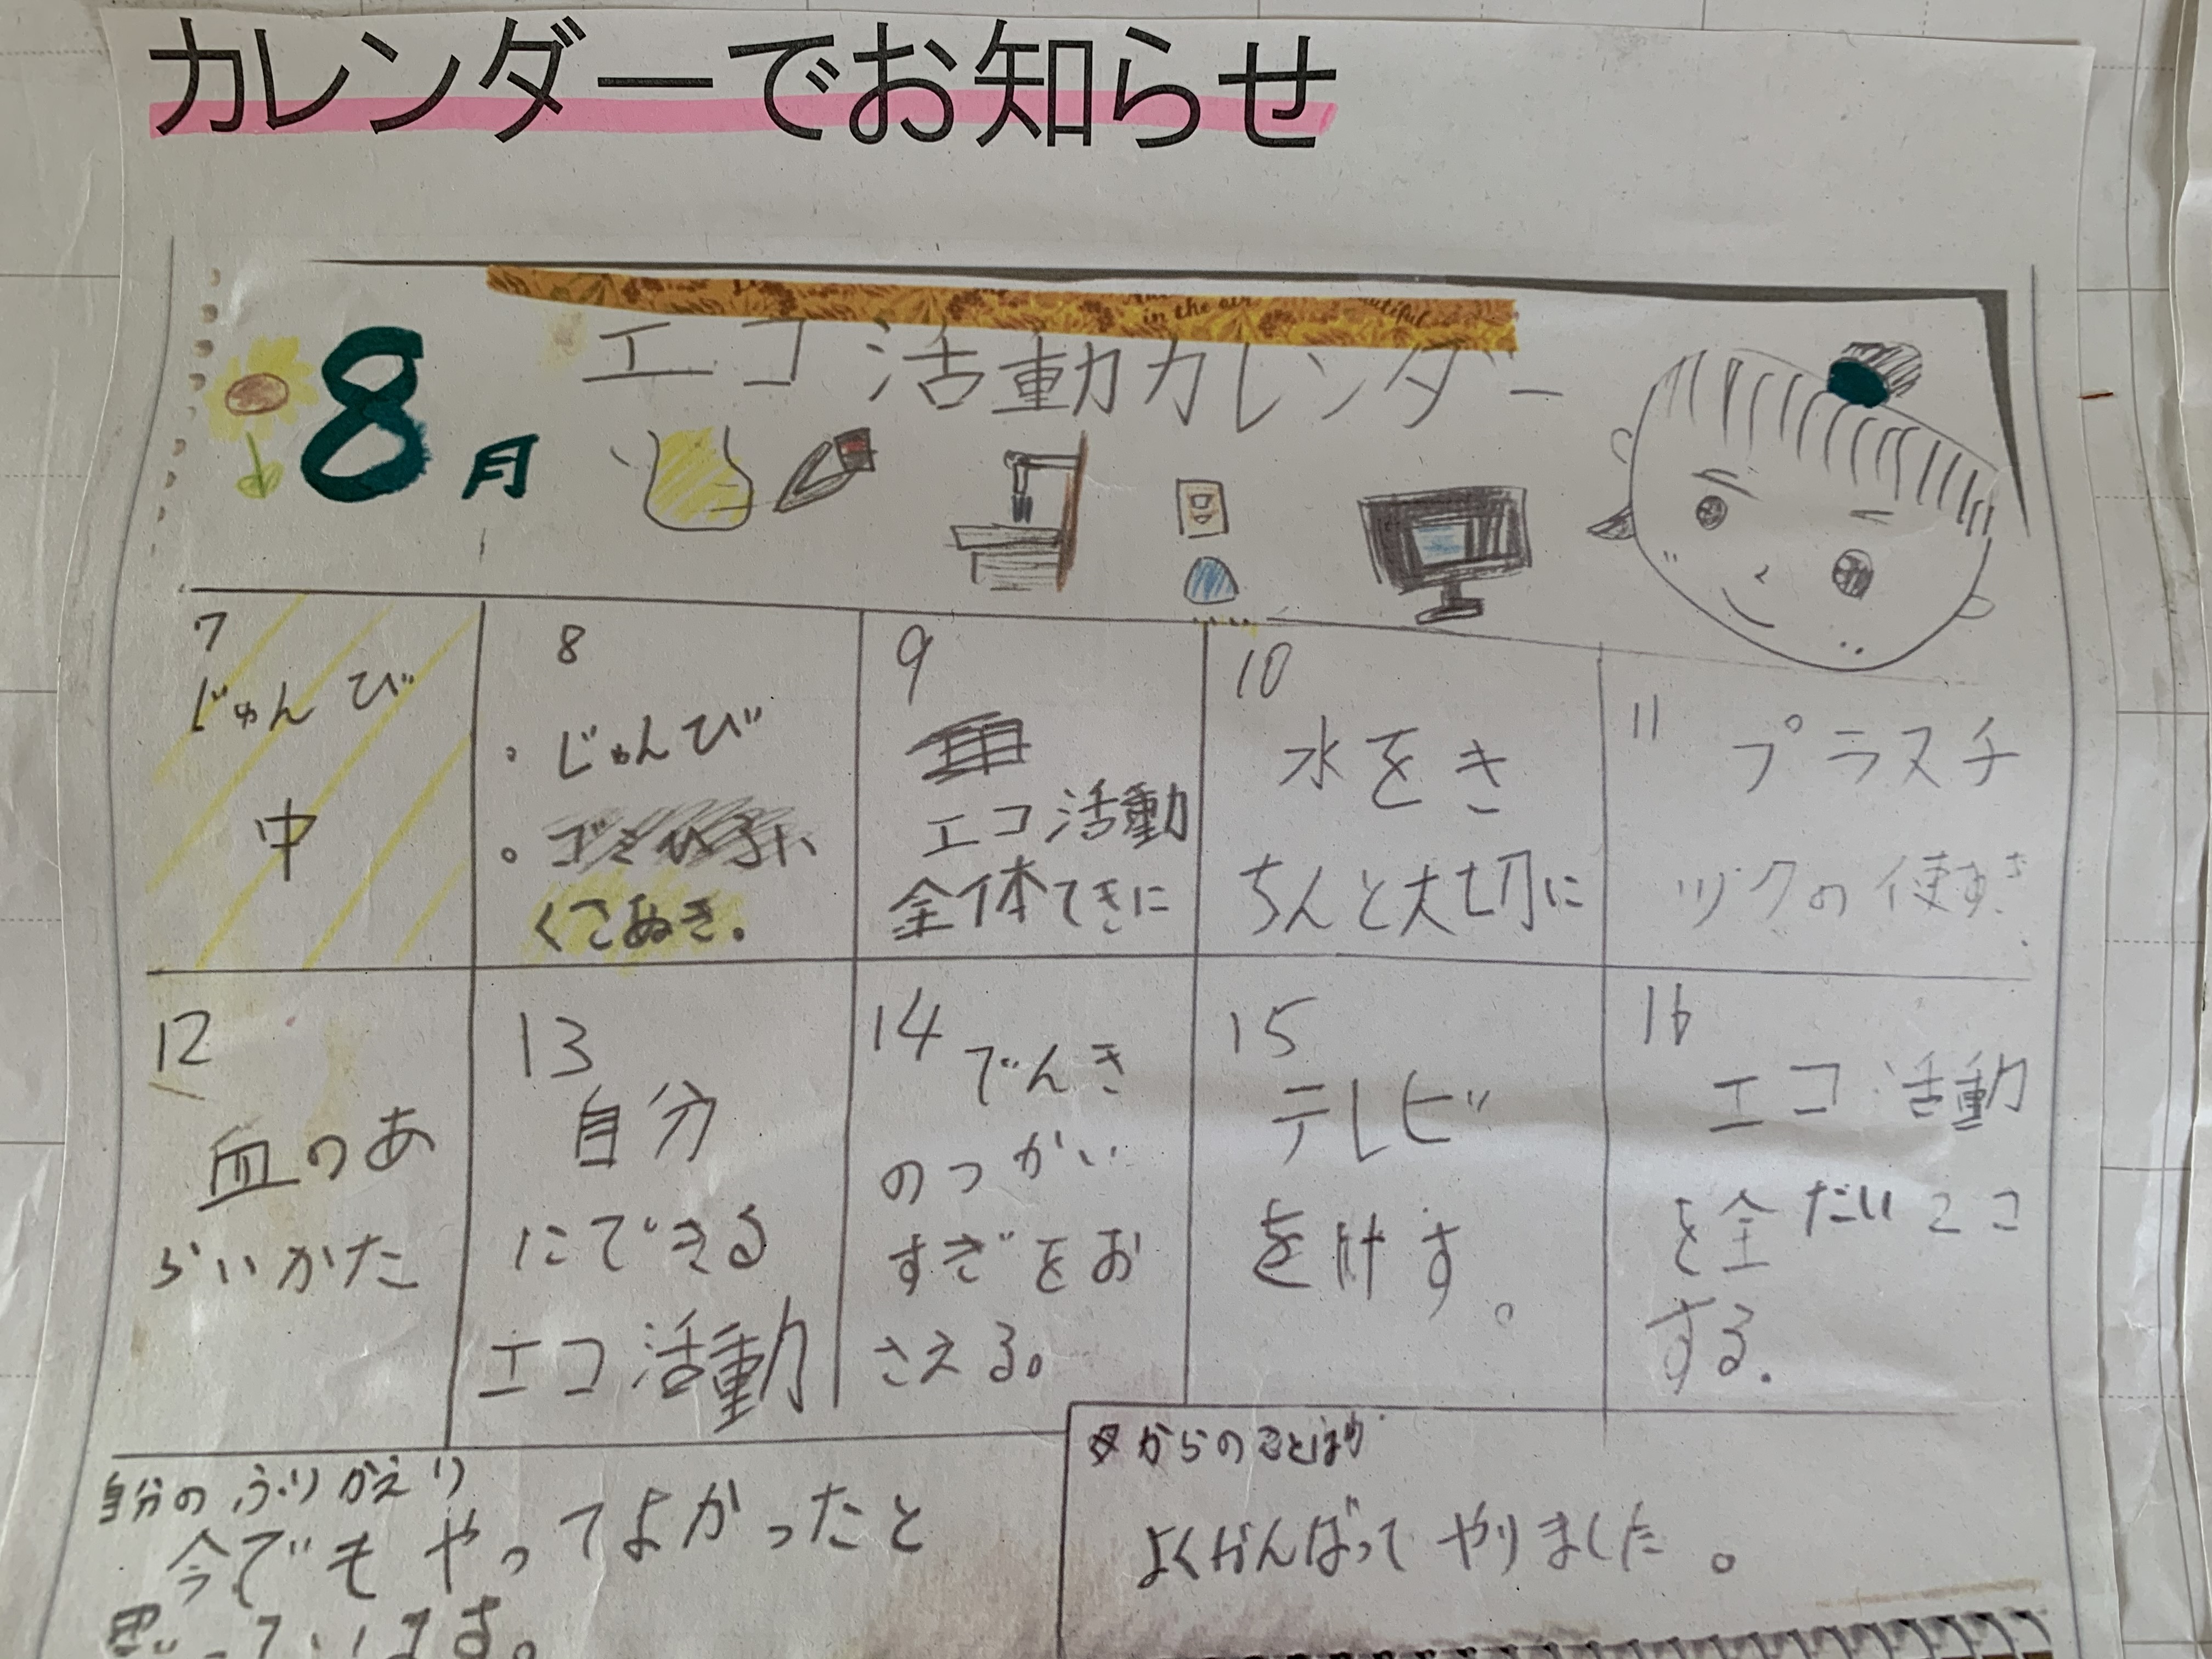 カレンダーでお知らせ
in the air
8月
エコ活動カレンダー
7
じゅんび
中
8
・じゅんび
くこぬき。
9
エコ活動
全体てきに
10
水をき
ちんと大切に
11
プラスチ
ックの使すぎ
12
皿のあ
らいかた
13
自分
にできる
エコ活動
14
でんき
のつかい
すぎをお
さえる。
15
テレビ
を消す。
16
エコ活動
を全だい
する.
自分のふりかえり
今でもやってよかったと
思っています。
からのことば
よくがんばってやりました。